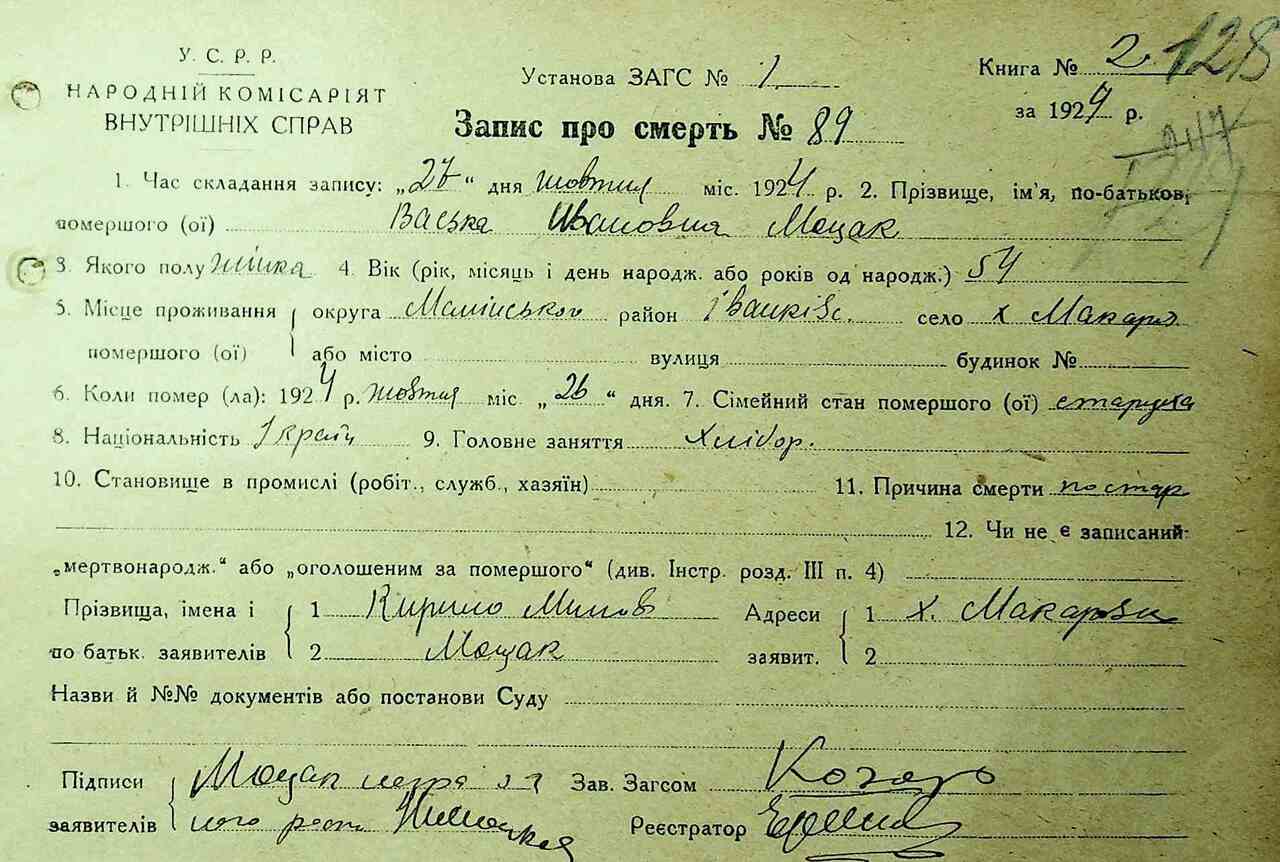 У. С. Р. Р.
НАРОДНІЙ КОМІСАРІЯТ
ВНУТРІШНІХ СПРАВ
Установа ЗАГС № 1
Книга № 2
128
за 1924 р.
247
Запис про смерть № 89
1. Час складання запису: „27“ дня жовтня міс. 1924 р. 2. Прізвище, ім'я, по-батькові,
помершого (ої) Васька Ивановна Моцак
3. Якого полу жінка 4. Вік (рік, місяць і день народж. або років од народж.) 54
5. Місце проживання { округа район село х Макаров
помершого (ої) або місто вулиця будинок №
6. Коли помер (ла): 1924 р. жовтня міс. „26“ дня. 7. Сімейний стан помершого (ої) старуха
8. Національність 9. Головне заняття Хлібор.
10. Становище в промислі (робіт., служб., хазяїн) 11. Причина смерти по стар
12. Чи не є записаний:
„мертвонародж.“ або „оголошеним за помершого“ (див. Інстр. розд. III п. 4)
Прізвища, імена і { 1 Кирило Адреси { 1 х. Макаров
по батьк. заявителів 2 Моцак заявит. 2
Назви й №№ документів або постанови Суду
Підписи { Моцак Зав. Загсом
заявителів Реєстратор